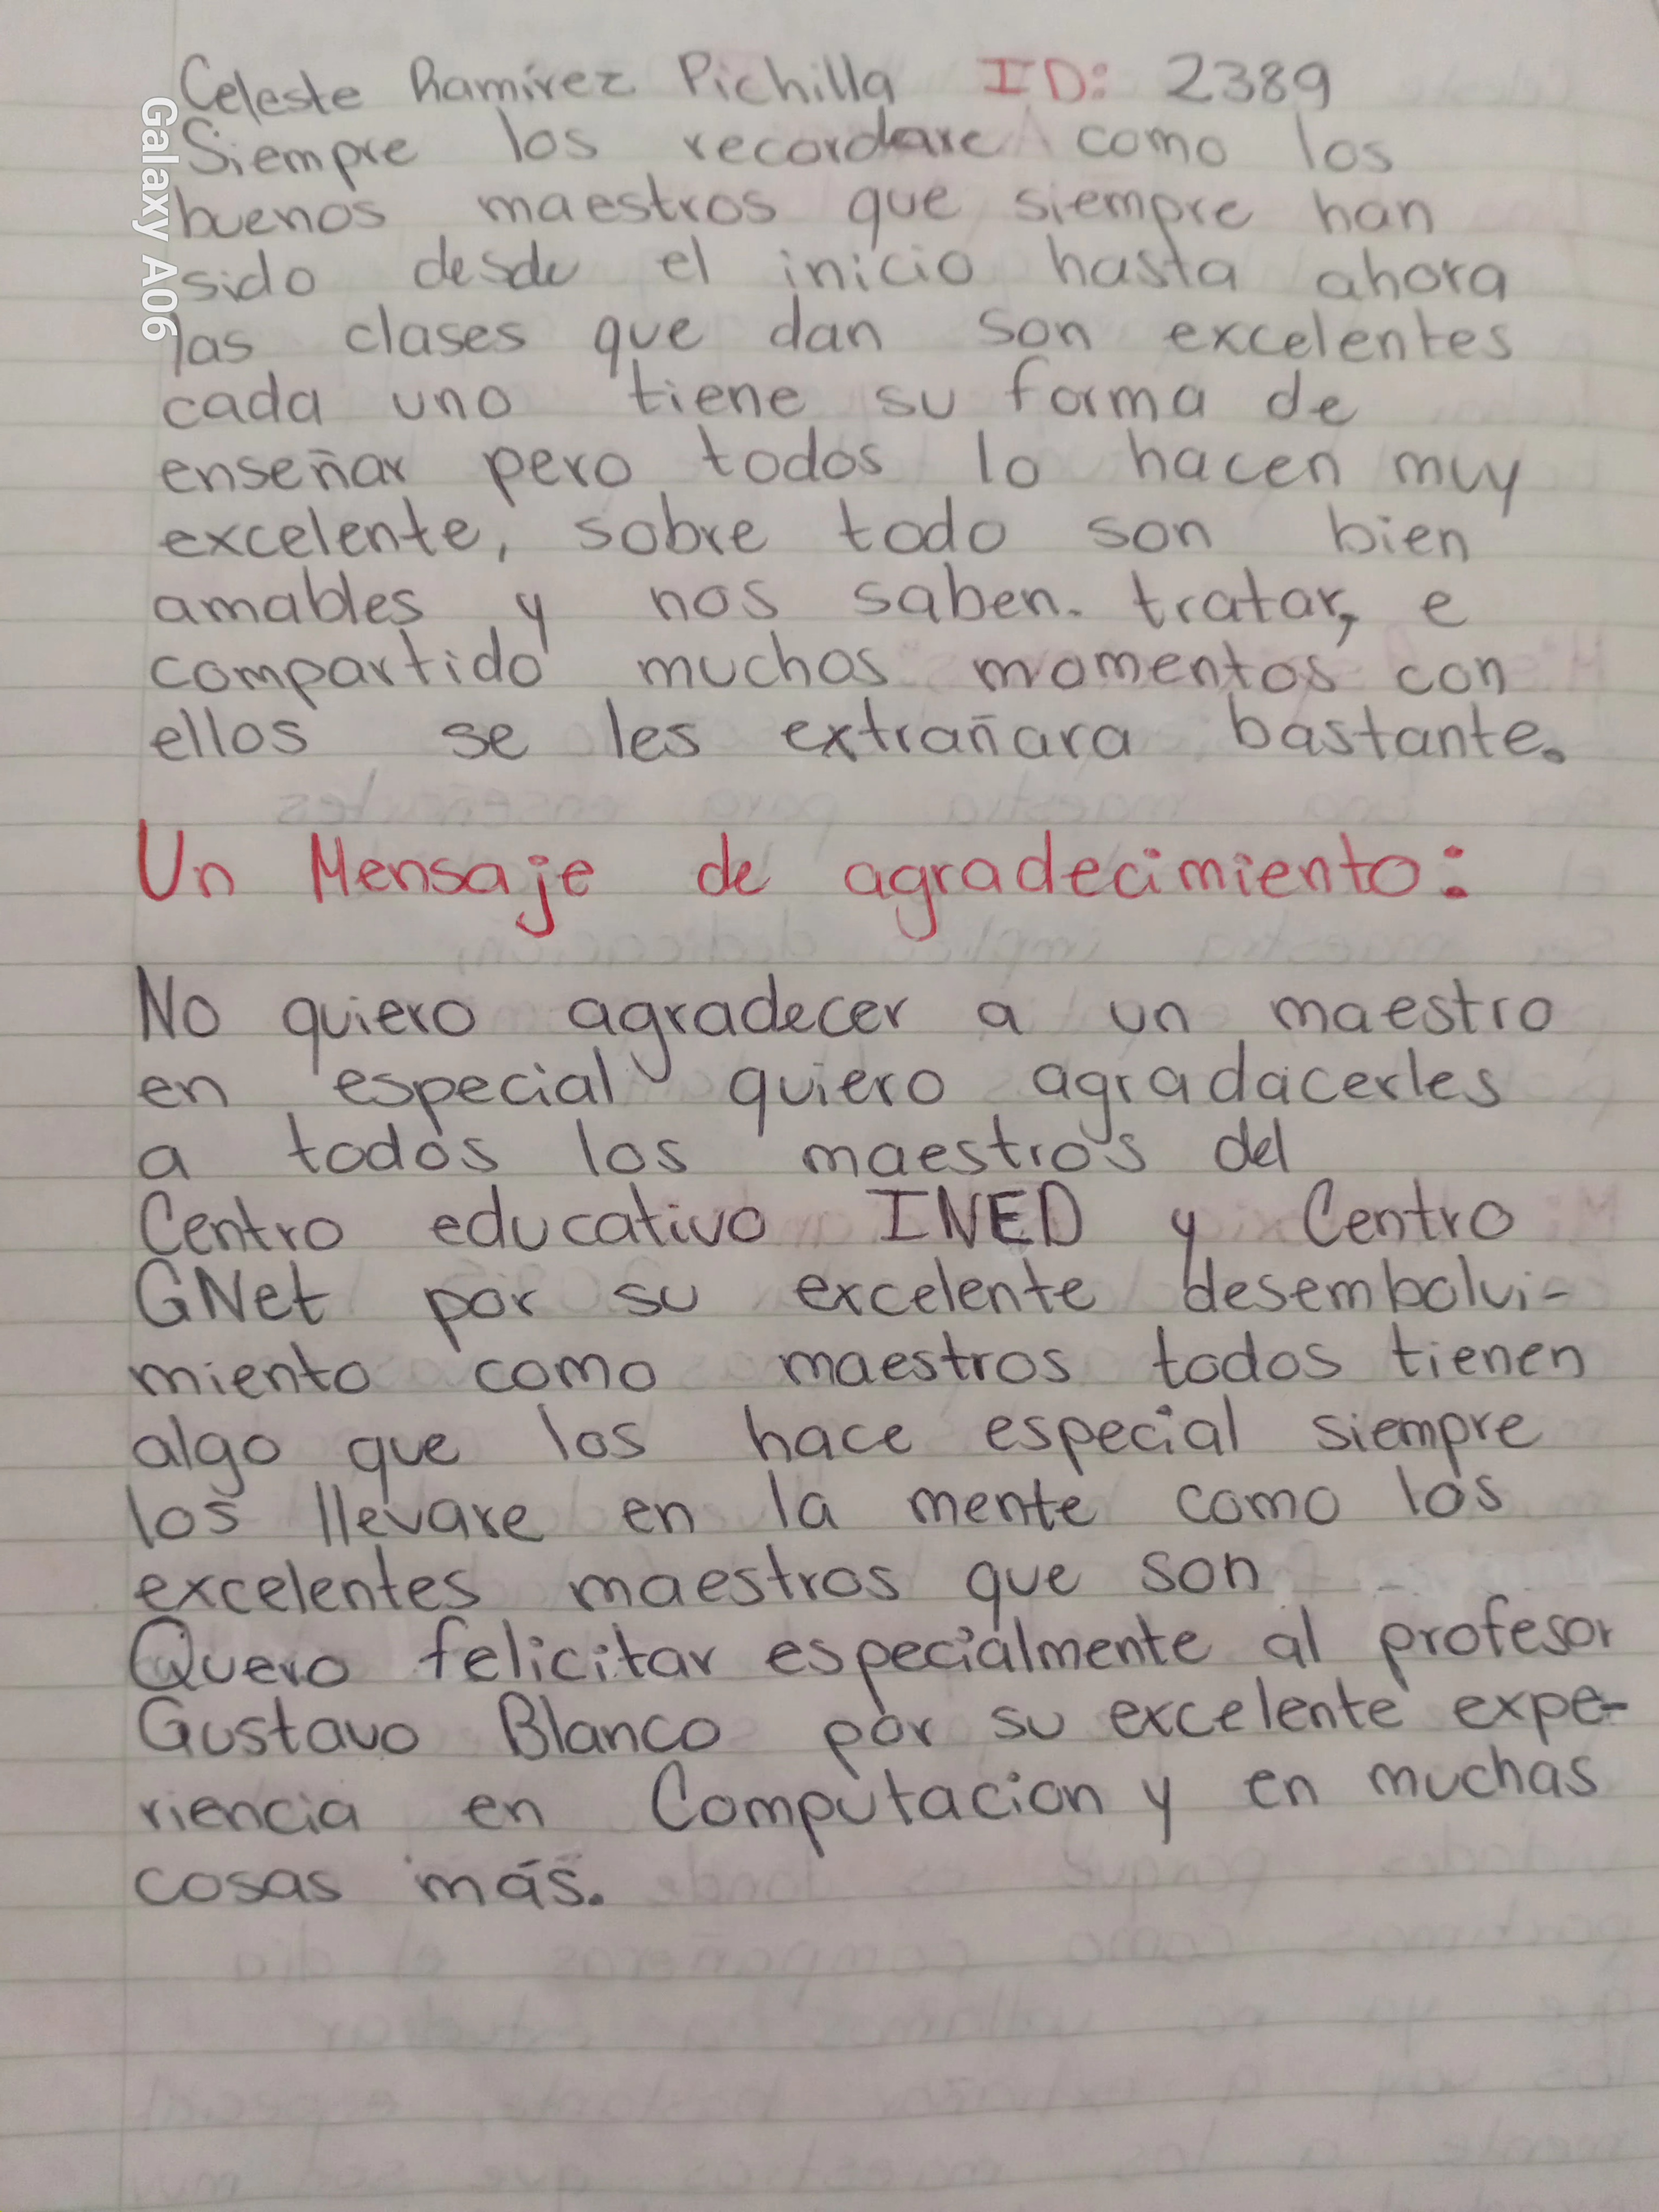 Celeste Ramírez Pichilla ID: 2389
Siempre los recordare como los
buenos maestros que siempre han
sido desde el inicio hasta ahora
las clases que dan son excelentes
cada uno tiene su forma de
enseñar pero todos lo hacen muy
excelente, sobre todo son bien
amables y nos saben. tratar, e
compartido muchos momentos con
ellos se les extrañara bastante.
Un Mensaje de agradecimiento:
No quiero agradecer a un maestro
en especial quiero agradacerles
a todos los maestros del
Centro educativo INED y Centro
GNet por su excelente desembolvi-
miento como maestros todos tienen
algo que los hace especial siempre
los llevare en la mente como los
excelentes maestros que son
Quero felicitar especialmente al profesor
Gustavo Blanco por su excelente expe-
riencia en Computacion y en muchas
cosas más.
Galaxy A06